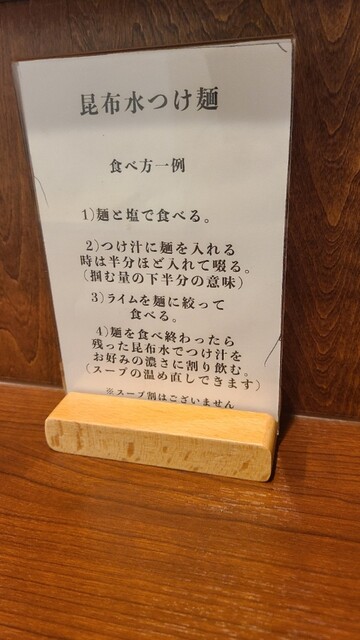 昆布水つけ麺
食べ方一例
1)麺と塩で食べる。
2)つけ汁に麺を入れる
時は半分ほど入れて啜る。
(掴む量の下半分の意味)
3)ライムを麺に絞って
食べる。
4)麺を食べ終わったら
残った昆布水でつけ汁を
お好みの濃さに割り飲む。
(スープの温め直しできます)
※スープ割はございません